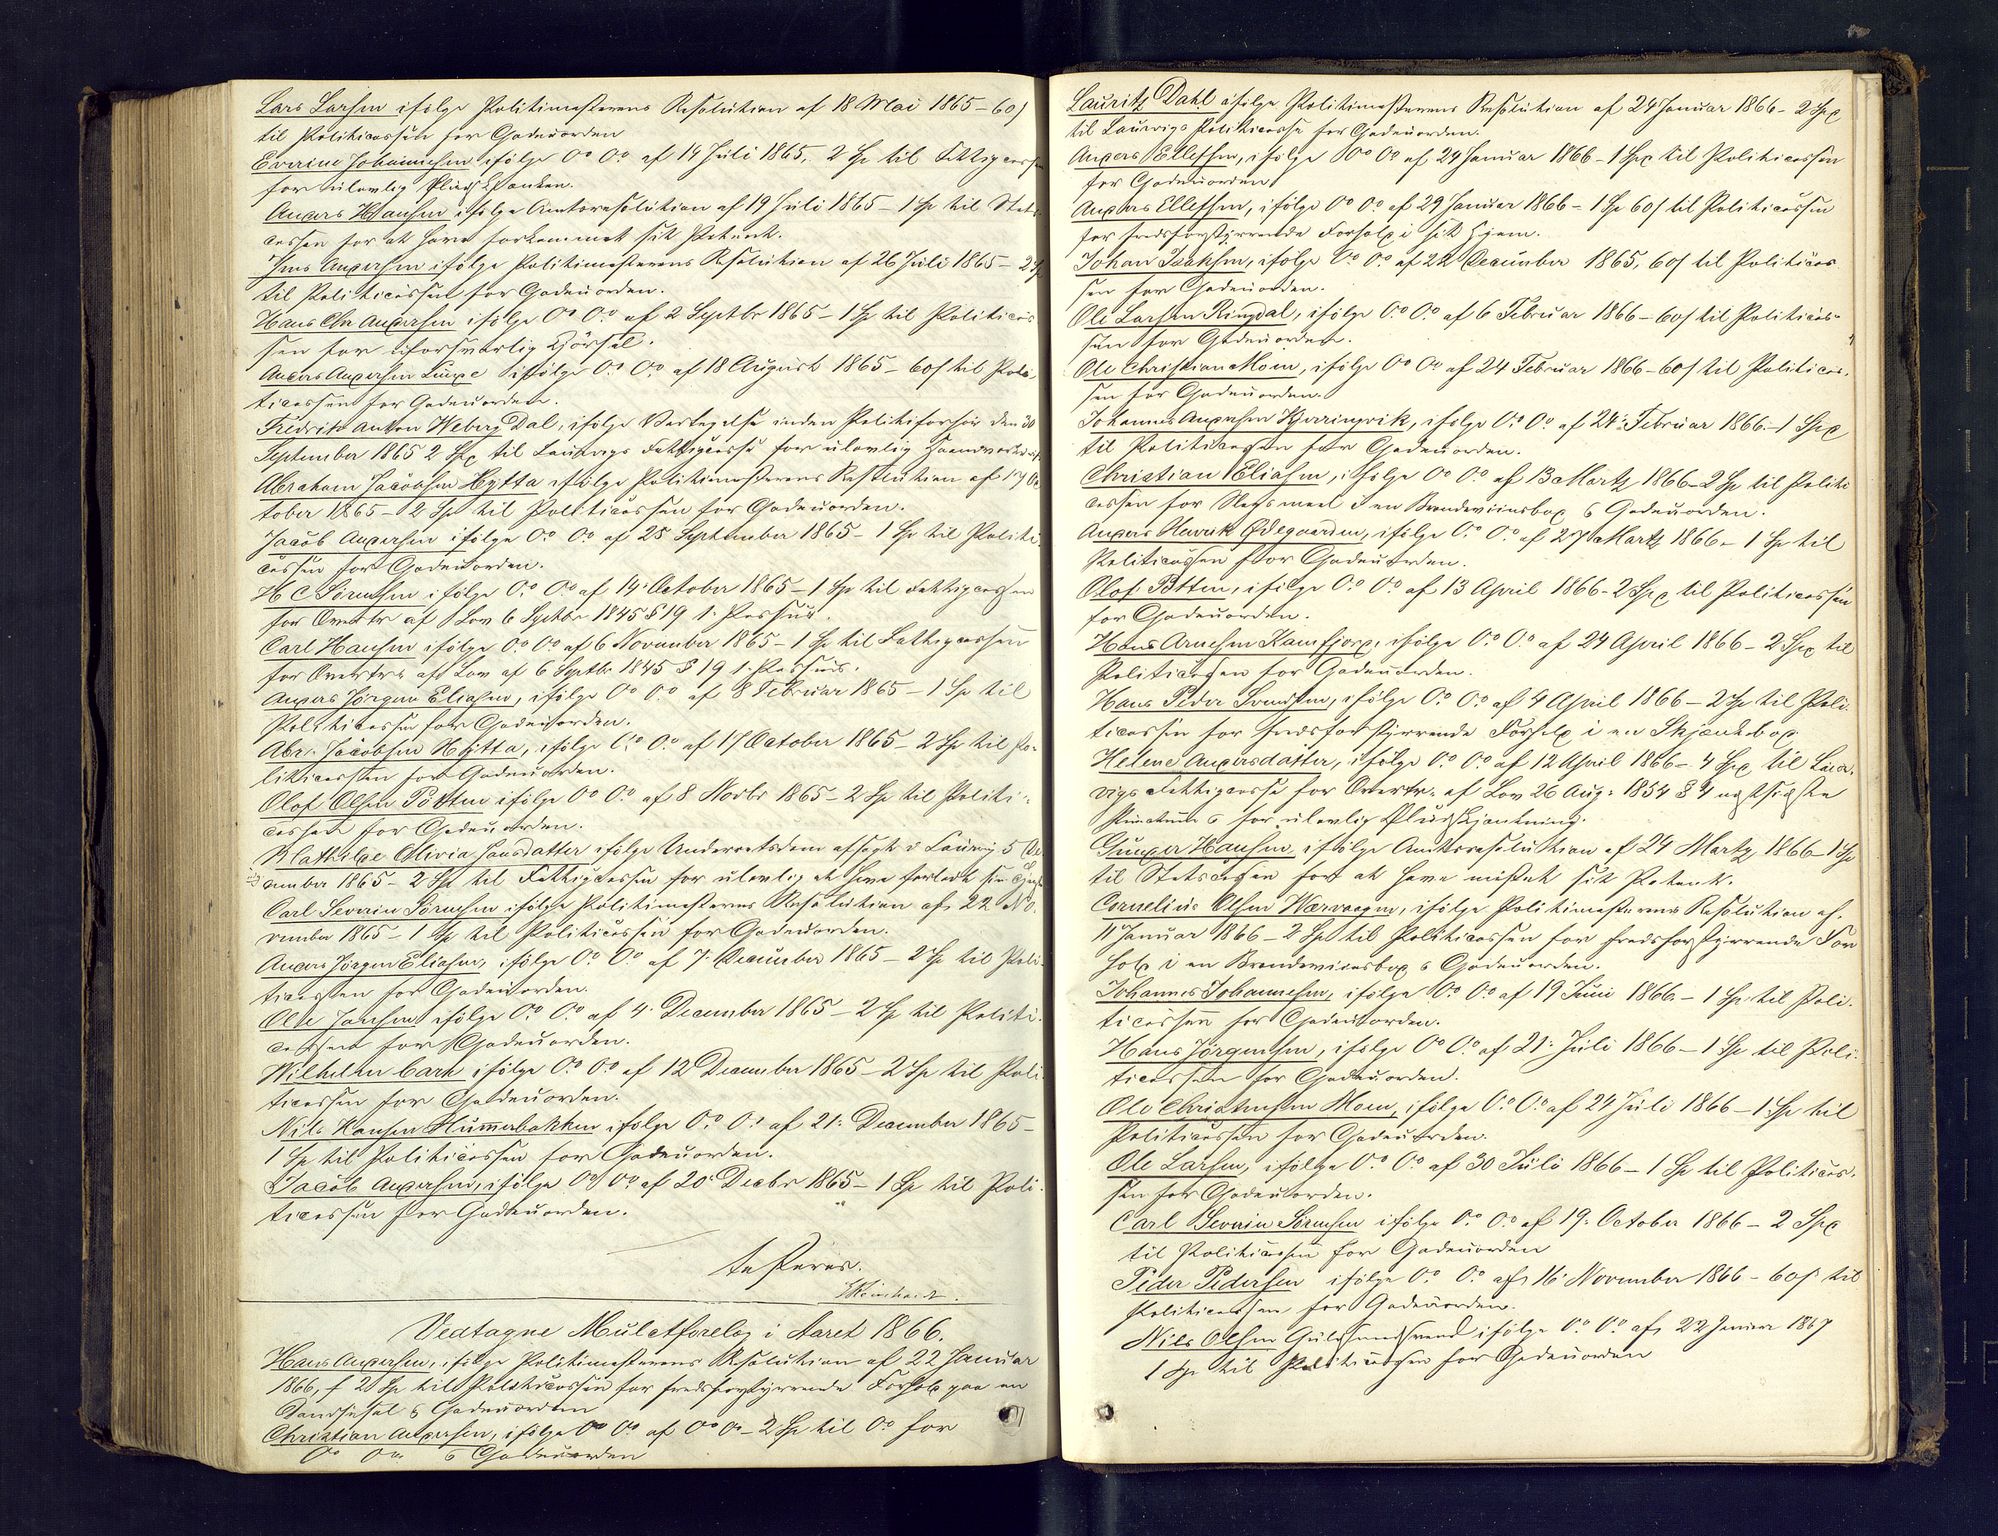 Lars Larsen ifölge Politimesterens Resolution af 18 Mai 1865 – 60 s
til Politicassen for Gadeuorden
Everine Johannesen ifölge Do Do af 14 Juli 1865, 2 Sp til Fattigcassen
for ulovlig
Anders Hansen ifölge Amtsresolution af 19 Juli 1865 – 1 Sp til Stats-
cassen for at have forkommet sit Patent.
Jens Andersen ifölge Politimesterens Resolution af 26 Juli 1865 – 2 Sp
til Politicassen for Gadeuorden.
Hans Chr Andersen ifölge Do Do af 2 Septbr 1865 – 1 Sp til Politicas
sen for uforsvarlig Kjörsel.
Anders Andersen Lunde ifölge Do Do af 18 August 1865 – 60 s til Poli-
ticassen for Gadeuorden.
Fredrik Anton Weberg Dal, ifölge Vedtagelse inden Politiforhör den 30
September 1865 2 Spd til Laurvigs Fattigcasse for ulovlig
Abraham Jacobsen Hytta ifölge Politimesterens Resolution af 17 Oc
tober 1865 – 2 Sp til Politicassen for Gadeuorden.
Jacob Andersen ifölge Do Do af 25 September 1865 – 1 Sp til Politi-
cassen for Gadeuorden.
H C Sörensen ifölge Do Do af 14 October 1865 – 1 Sp til Fattigcassen
for Overtr af Lov 6 Septbr 1845 § 19 1. Passus.
Carl Hansen ifölge Do Do af 6 November 1865 – 1 Sp til Fattigcassen
for Overtr. af Lov af 6 Septbr 1845 § 19 1. Passus.
Anders Jörgen Eliasen, ifölge Do Do af 8 Februar 1865 – 1 Sp til
Politicassen for Gadeuorden.
Abr. Jacobsen Hytta, ifölge Do Do af 17 October 1865 – 2 Sp til Po-
liticassen for Gadeuorden.
Olof Olsen Potten ifölge Do Do af 8 Novbr 1865 – 2 Sp til Politi-
cassen for Gadeuorden.
Mathilde Olivia Hansdatter ifölge Underretsdom afsagt i Laurvig 5 De
cember 1865 – 2 Sp til Fattigcassen for ulovlig at have forladt sin
Carl Severin Sörensen ifölge Politimesterens Resolution af 22 No
vember 1865 – 1 Sp til Politicassen for Gadeuorden.
Anders Jörgen Eliasen, ifölge Do Do af 7. December 1865 – 2 Sp til Poli-
ticassen for Gadeuorden.
Ole Jansen ifölge Do Do af 4. December 1865 – 2 Sp til Politi-
cassen for Gadeuorden.
Wilhelm Carh ifölge Do Do af 12 December 1865 – 2 Sp til Poli-
ticassen for Gadeuorden.
Nils Hansen Hummerbakken ifölge Do Do af 21. December 1865 –
1 Sp til Politicassen for Gadeuorden.
Jacob Andersen, ifölge Do Do af 20 Decbr 1865 – 1 Sp til Poli-
ticassen for Gadeuorden.
testeres.
Vedtagne Mulctforelæg i Aaret 1866.
Hans Andersen, ifölge Politimesterens Resolution af 22 Januar
1866, 2 Sp til Politicassen for fredsforstyrrende Forhold paa en
Dandsesal & Gadeuorden
Christian Andersen, ifölge Do Do af Do Do – 2 Sp til Do for
Do Do & Gadeuorden
Lauritz Dahl ifölge Politimesterens Resolution af 24 Januar 1866 – 2 Spd
til Laurvigs Politicasse for Gadeuorden.
Anders Ellefsen, ifölge Do Do af 24 Januar 1866 – 1 Spd til Politicassen
for Gadeuorden
Anders Ellefsen, ifölge Do Do af 29 Januar 1866 – 1 Sp 60 s til Politicassen
for fredsforstyrrende Forhold i sit Hjem.
Johan Isaksen, ifölge Do Do af 22 December 1865, 60 s til Politicas
sen for Gadeuorden.
Ole Larsen Ringdal, ifölge Do Do af 6 Februar 1866 – 60 s til Politicas-
sen for Gadeuorden.
Ole Christian Moen, ifölge Do Do af 24 Februar 1866 – 60 s til Politicas-
sen for Gadeuorden.
Johannes Andersen Kjerringvik, ifölge Do Do af 24. Februar 1866 – 1 Spd
til Politicassen for Gadeuorden.
Christian Eliasen, ifölge Do Do af 13 Martz 1866 – 2 Sp til Politi
cassen for Slagsmaal i en Brændeviinsbod & Gadeuorden.
Anders Henrik Ødegaarden, ifölge Do Do af 27 Martz 1866 – 1 Sp til
Politicassen for Gadeuorden.
Olof Potten, ifölge Do Do af 13 April 1866 – 2 Spd til Politicassen
for Gadeuorden.
Hans Arnesen Kamfjord, ifölge Do Do af 24 April 1866 – 2 Spd til
Politicassen for Gadeuorden.
Hans Peder Svendsen, ifölge Do Do af 4 April 1866 – 2 Sp til Poli-
ticassen for fredsforstyrrende Forhold i en Skjænkebod
Helene Andersdatter, ifölge Do Do af 12 April 1866 – 4 Spd til Laur-
vigs Fattigcasse for Overtr. af Lov 26 Aug: 1854 § 4 næstsidste
for ulovlig
Gunder Hansen, ifölge Amtsresolution af 24 Martz 1866 – 1 Sp
til Statscassen for at have mistet sit Patent.
Cornelius Olsen Værvaagen, ifölge Politimesterens Resolution af
11 Januar 1866 – 2 Sp til Politicassen for fredsforstyrrende For
hold i en Brændeviinsbod & Gadeuorden.
Johannes Johannesen, ifölge Do Do af 19 Juni 1866 – 1 Sp til Poli-
ticassen for Gadeuorden.
Hans Jörgensen, ifölge Do Do af 21. Juli 1866 – 1 Sp til Poli-
ticassen for Gadeuorden.
Ole Christensen Moen, ifölge Do Do af 24 Juli 1866 – 1 Sp til
Politicassen for Gadeuorden.
Ole Larsen, ifölge Do Do af 30 Juli 1866 – 1 Sp til Politicas-
sen for Gadeuorden.
Carl Severin Sörensen ifölge Do Do af 19. October 1866 – 2 Spd
til Politicassen for Gadeuorden
Peder Pedersen ifölge Do Do af 16 November 1866 – 60 s til
Politicassen for Gadeuorden.
Nils Olsen ifölge Do Do af 22 Januar 1867
1 Sp til Politicassen for Gadeuorden